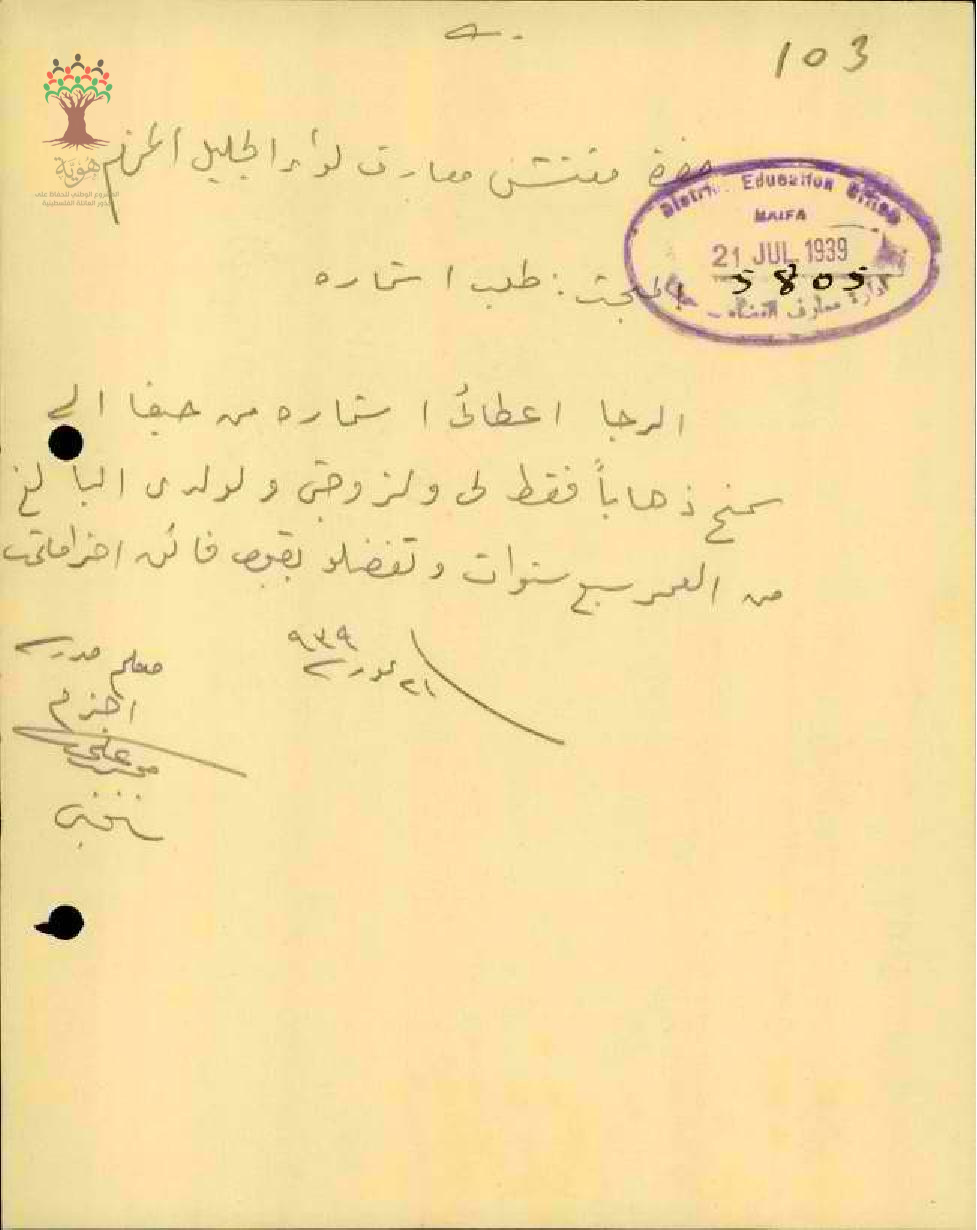 103
حضرة مفتش معارف لواء الجليل المحترم
District Education Office
HAIFA
21 JUL 1939
5805
ادارة معارف القضاء - حيفا
المبحث : طلب استماره
الرجا اعطائي استماره من حيفا الى
سمخ ذهاباً فقط لي ولزوجتي ولولدي البالغ
من العمر سبع سنوات وتفضلو بقبول فائق احتراماتي
٢١ تموز سنة ٩٣٩
معلم مدرسة
اجزم
هُوِيَّة
المشروع الوطني للحفاظ على
جذور العائلة الفلسطينية